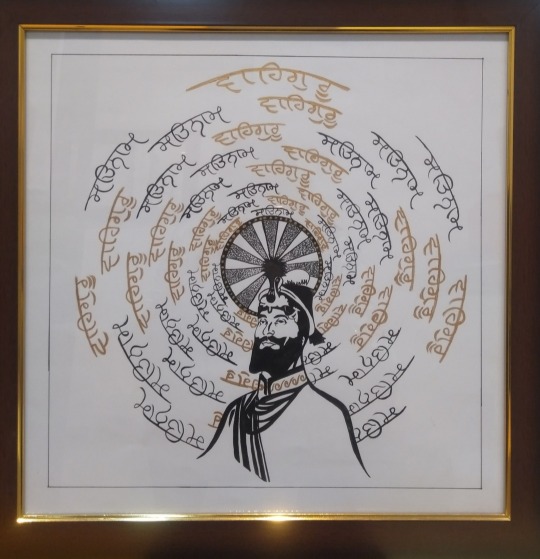 ਵਾਹਿਗੁਰੂ
ਵਾਹਿਗੁਰੂ
ਸਤਿਨਾਮ
ਸਤਿਨਾਮ
ਵਾਹਿਗੁਰੂ
ਸਤਿਨਾਮ
ਸਤਿਨਾਮ
ਸਤਿਨਾਮ
ਸਤਿਨਾਮ
ਵਾਹਿਗੁਰੂ
ਵਾਹਿਗੁਰੂ
ਸਤਿਨਾਮ
ਸਤਿਨਾਮ
ਸਤਿਨਾਮ
ਸਤਿਨਾਮ
ਵਾਹਿਗੁਰੂ
ਵਾਹਿਗੁਰੂ
ਸਤਿਨਾਮ
ਸਤਿਨਾਮ
ਸਤਿਨਾਮ
ਸਤਿਨਾਮ
ਵਾਹਿਗੁਰੂ
ਵਾਹਿਗੁਰੂ
ਵਾਹਿਗੁਰੂ
ਵਾਹਿਗੁਰੂ
ਵਾਹਿਗੁਰੂ
ਵਾਹਿਗੁਰੂ
ਵਾਹਿਗੁਰੂ
ਵਾਹਿਗੁਰੂ
ਵਾਹਿਗੁਰੂ
ਵਾਹਿਗੁਰੂ
ਵਾਹਿਗੁਰੂ
ਵਾਹਿਗੁਰੂ
ਸਤਿਨਾਮ
ਸਤਿਨਾਮ
ਸਤਿਨਾਮ
ਸਤਿਨਾਮ
ਸਤਿਨਾਮ
ਸਤਿਨਾਮ
ਸਤਿਨਾਮ
ਸਤਿਨਾਮ
ਸਤਿਨਾਮ
ਸਤਿਨਾਮ